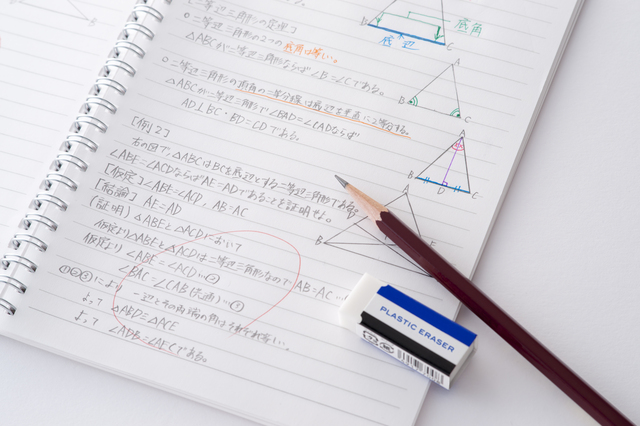 (二等辺三角形の定理)
○二等辺三角形の2つの底角は等しい。
△ABCが二等辺三角形ならば∠B=∠Cである。
○二等辺三角形の頂角の二等分線は底辺を垂直に2等分する。
△ABCが二等辺三角形で∠BAD=∠CADならば
AD⊥BC・BD=CDである。
[例2]
右の図で、△ABCはBCを底辺とする二等辺三角形である。
∠ABE=∠ACDならばAE=ADであることを証明せよ。
[仮定] ∠ABE=∠ACD, AB=AC
[結論] AE=AD
(証明) △ABEと△ACDにおいて
仮定より△ABEと△ACDは二等辺三角形なので AB=AC …
仮定より ∠ABE=∠ACD…②
∠BAC=∠CAB(共通)…③
①②③により 一辺とその両端の角はそれぞれ等しい。
よって △ABD≡△ACE
よって ∠ADB=∠AECである。
底角
底辺
B
C
A
B
C
A
B
D
C
A
B
PLASTIC ERASER